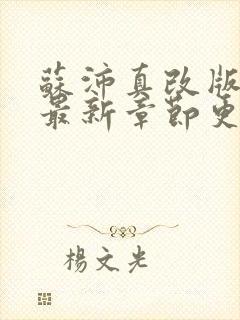 蘇沛真改版
最新章節更
楊文光